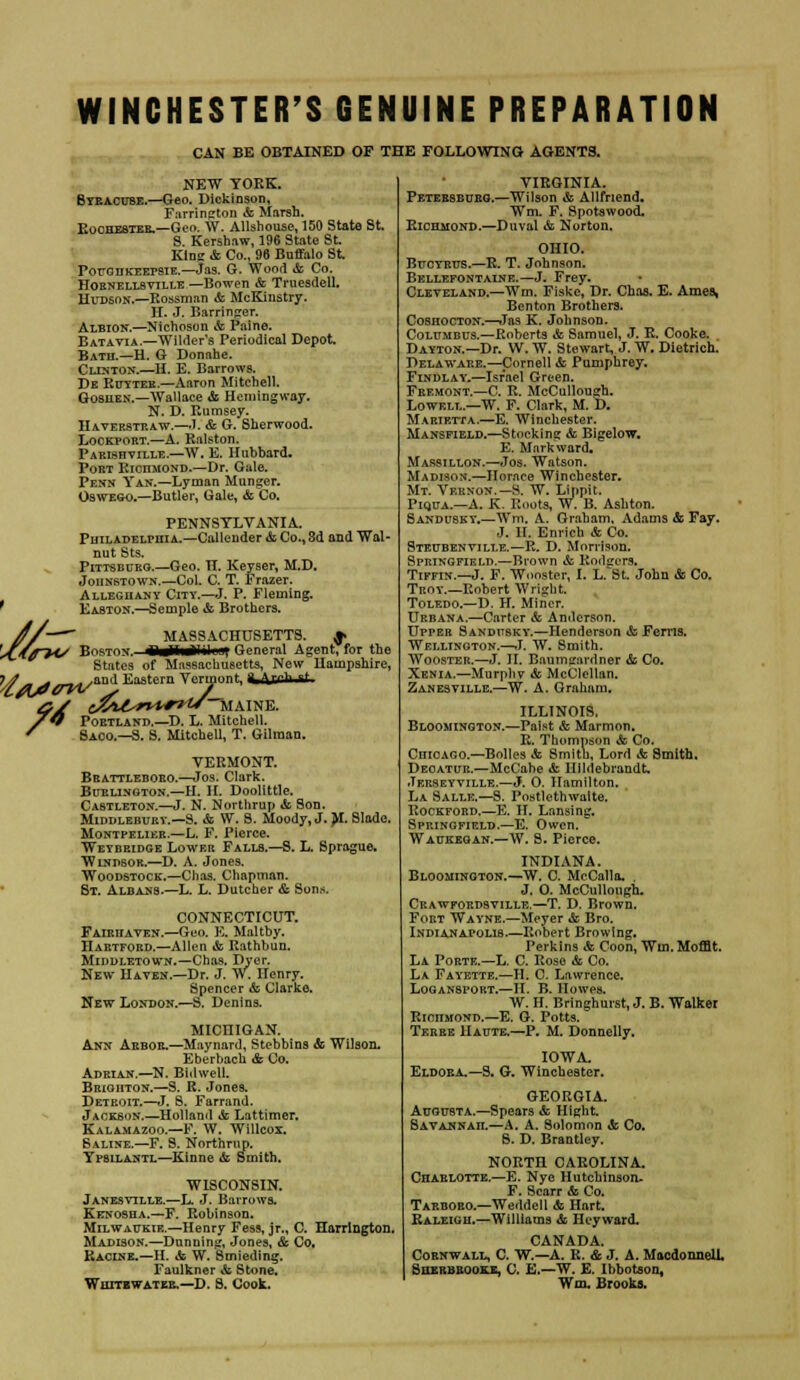 WINCHESTER'S GENUINE PREPARATION
CAN BE OBTAINED OF THE FOLLOWING AGENTS.
NEW YORK.
SYRACUSE.—Geo. Dickinson,
Farrington & Marsh.
ROCHESTER.—Geo. W. Allshouse, 150 State St.
S. Kershaw, 196 State St.
King & Co., 96 Buffalo St.
POUGHKEEPSIE.—Jas. G. Wood & Co.
HORNELLSVILLE—Bowen & Truesdell.
HUDSON.—Rossman & McKinstry.
H. J. Barringer.
ALBION.—Nichoson & Paine.
BATAVIA.—Wilder's Periodical Depot.
BATH.—H. G Donahe.
CLINTON.—H. E. Barrows.
DE RUYTER.—Aaron Mitchell.
GOSHEN.—Wallace & Hemingway.
N. D. Rumsey.
HAVERSTRAW.—J. & G. Sherwood.
LOCKPORT.—A. Ralston.
PARISHVILLE.—W. E. Hubbard.
PORT RICHMOND.—Dr. Gale.
PENN YAN.—Lyman Munger.
OSWEGO.—Butler, Gale, & Co.
PENNSYLVANIA.
PHILADELPHIA.—Callender & Co., 3d and Wal-
nut Sts.
PITTSBURG.—Geo. H. Keyser, M.D.
JOHNSTOWN.—Col. C. T. Frazer.
ALLEGHANY CITY.—J. P. Fleming.
EASTON.—Semple & Brothers.
MASSACHUSETTS.
BOSTON.— General Agent, for the
States of Massachusetts, New Hampshire,
and Eastern Vermont,
MAINE.
PORTLAND.—D. L. Mitchell.
SACO.—S. S. Mitchell, T. Gilman.
VERMONT.
BRATTLEBORO.—Jos. Clark.
BURLINGTON.—H. H. Doolittle.
CASTLETON.—J. N. Northrup & Son.
MIDDLEBURY.—S. & W. S. Moody, J. M. Slade.
MONTPELIER.—L. F. Pierce.
WEYBRIDGE LOWER FALLS.—S. L. Sprague.
WINDSOR.—D. A. Jones.
WOODSTOCK.—Chas. Chapman.
ST. ALBANS.—L. L. Dutcher & Sons.
CONNECTICUT.
FAIRHAVEN.—Geo. E. Maltby.
HARTFORD.—Allen & Rathbun.
MIDDLETOWN.—Chas. Dyer.
NEW HAVEN.—Dr. J. W. Henry.
Spencer & Clarke.
NEW LONDON.—S. Denins.
MICHIGAN.
ANN ARBOR.—Maynard, Stebbins & Wilson.
Eberbach & Co.
ADRIAN.—N. Bidwell.
BRIGHTON.—S. R. Jones.
DETROIT.—J. S. Farrand.
JACKSON.—Holland & Lattimer.
KALAMAZOO.—F. W. Willcox.
SALINE.—F. S. Northrup.
YPSILANTI.—Kinne & Smith.
WISCONSIN.
JANESVILLE.—L. J. Barrows.
KENOSHA.—F. Robinson.
MILWAUKIE.—Henry Fess, jr., C. Harrington.
MADISON.—Dunning, Jones, & Co.
RACINE.—H. & W. Smieding.
Faulkner & Stone.
WHITEWATER.—D. S. Cook.
VIRGINIA.
PETERSBURG.—Wilson & Allfriend.
Wm. F. Spotswood.
RICHMOND.—Duval & Norton.
OHIO.
BUCYRUS.—R. T. Johnson.
BELLEFONTAINE.—J. Frey.
CLEVELAND.—Wm. Fiske, Dr. Chas. E. Ames,
Benton Brothers.
COSHOCTON.—Jas K. Johnson.
COLUMBUS.—Roberts & Samuel, J. R. Cooke.
DAYTON.—Dr. W. W. Stewart, J. W. Dietrich.
DELAWARE.—Cornell & Pumphrey.
FINDLAY.—Israel Green.
FREMONT.—C. R. McCullough.
LOWELL.—W. F. Clark, M. D.
MARIETTA.—E. Winchester.
MANSFIELD.—Stocking & Bigelow.
E. Markward.
MASSILLON.—Jos. Watson.
MADISON.—Horace Winchester.
MT. VERNON.—S. W. Lippit.
PIQUA.—A. K. Roots, W. B. Ashton.
SANDUSKY.—Wm. A. Graham, Adams & Fay.
J. H. Enrich & Co.
STEUBENVILLE.—R. D. Morrison.
SPRINGFIELD.—Brown & Rodgers.
TIFFIN.—J. F. Wooster, I. L. St. John & Co.
TROY.—Robert Wright.
TOLEDO.—D. H. Miner.
URBANA.—Carter & Anderson.
UPPER SANDUSKY.—Henderson & Ferris.
WELLINGTON.—J. W. Smith.
WOOSTER.—J. H. Baumgardner & Co.
XENIA.—Murphy & McClellan.
ZANESVILLE.—W. A. Graham.
ILLINOIS.
BLOOMINGTON.—Paist & Marmon.
R. Thompson & Co.
CHICAGO.—Bolles & Smith, Lord & Smith.
DECATUR.—McCabe & Hildebrandt.
JERSEYVILLE.—J. O. Hamilton.
LA SALLE.—S. Postlethwaite.
ROCKFORD.—E. H. Lansing.
SPRINGFIELD.—E. Owen.
WAUKEGAN.—W. S. Pierce.
INDIANA.
BLOOMINGTON.—W. C. McCalla.
J. O. McCullough.
CRAWFORDSVILLE.—T. D. Brown.
FORT WAYNE.—Meyer & Bro.
INDIANAPOLIS.—Robert Browing.
Perkins & Coon, Wm. Moffit.
LA PORTE.—L. C. Rose & Co.
LA FAYETTE.—H. C. Lawrence.
LOGANSPORT.—H. B. Howes.
W. H. Bringhurst, J. B. Walker
RICHMOND.—E. G. Potts.
TERRE HAUTE.—P. M. Donnelly.
IOWA.
ELDORA.—S. G. Winchester.
GEORGIA.
AUGUSTA.—Spears & Hight.
SAVANNAH.—A. A. Solomon & Co.
S. D. Brantley.
NORTH CAROLINA.
CHARLOTTE.—E. Nye Hutchinson.
F. Scarr & Co.
TARBORO.—Weddell & Hart.
RALEIGH.—Williams & Heyward.
CANADA.
CORNWALL, C. W.—A. R. & J. A. Macdonnell.
SHERBROOKE, C. E.—W. E. Ibbotson,
Wm. Brooks.